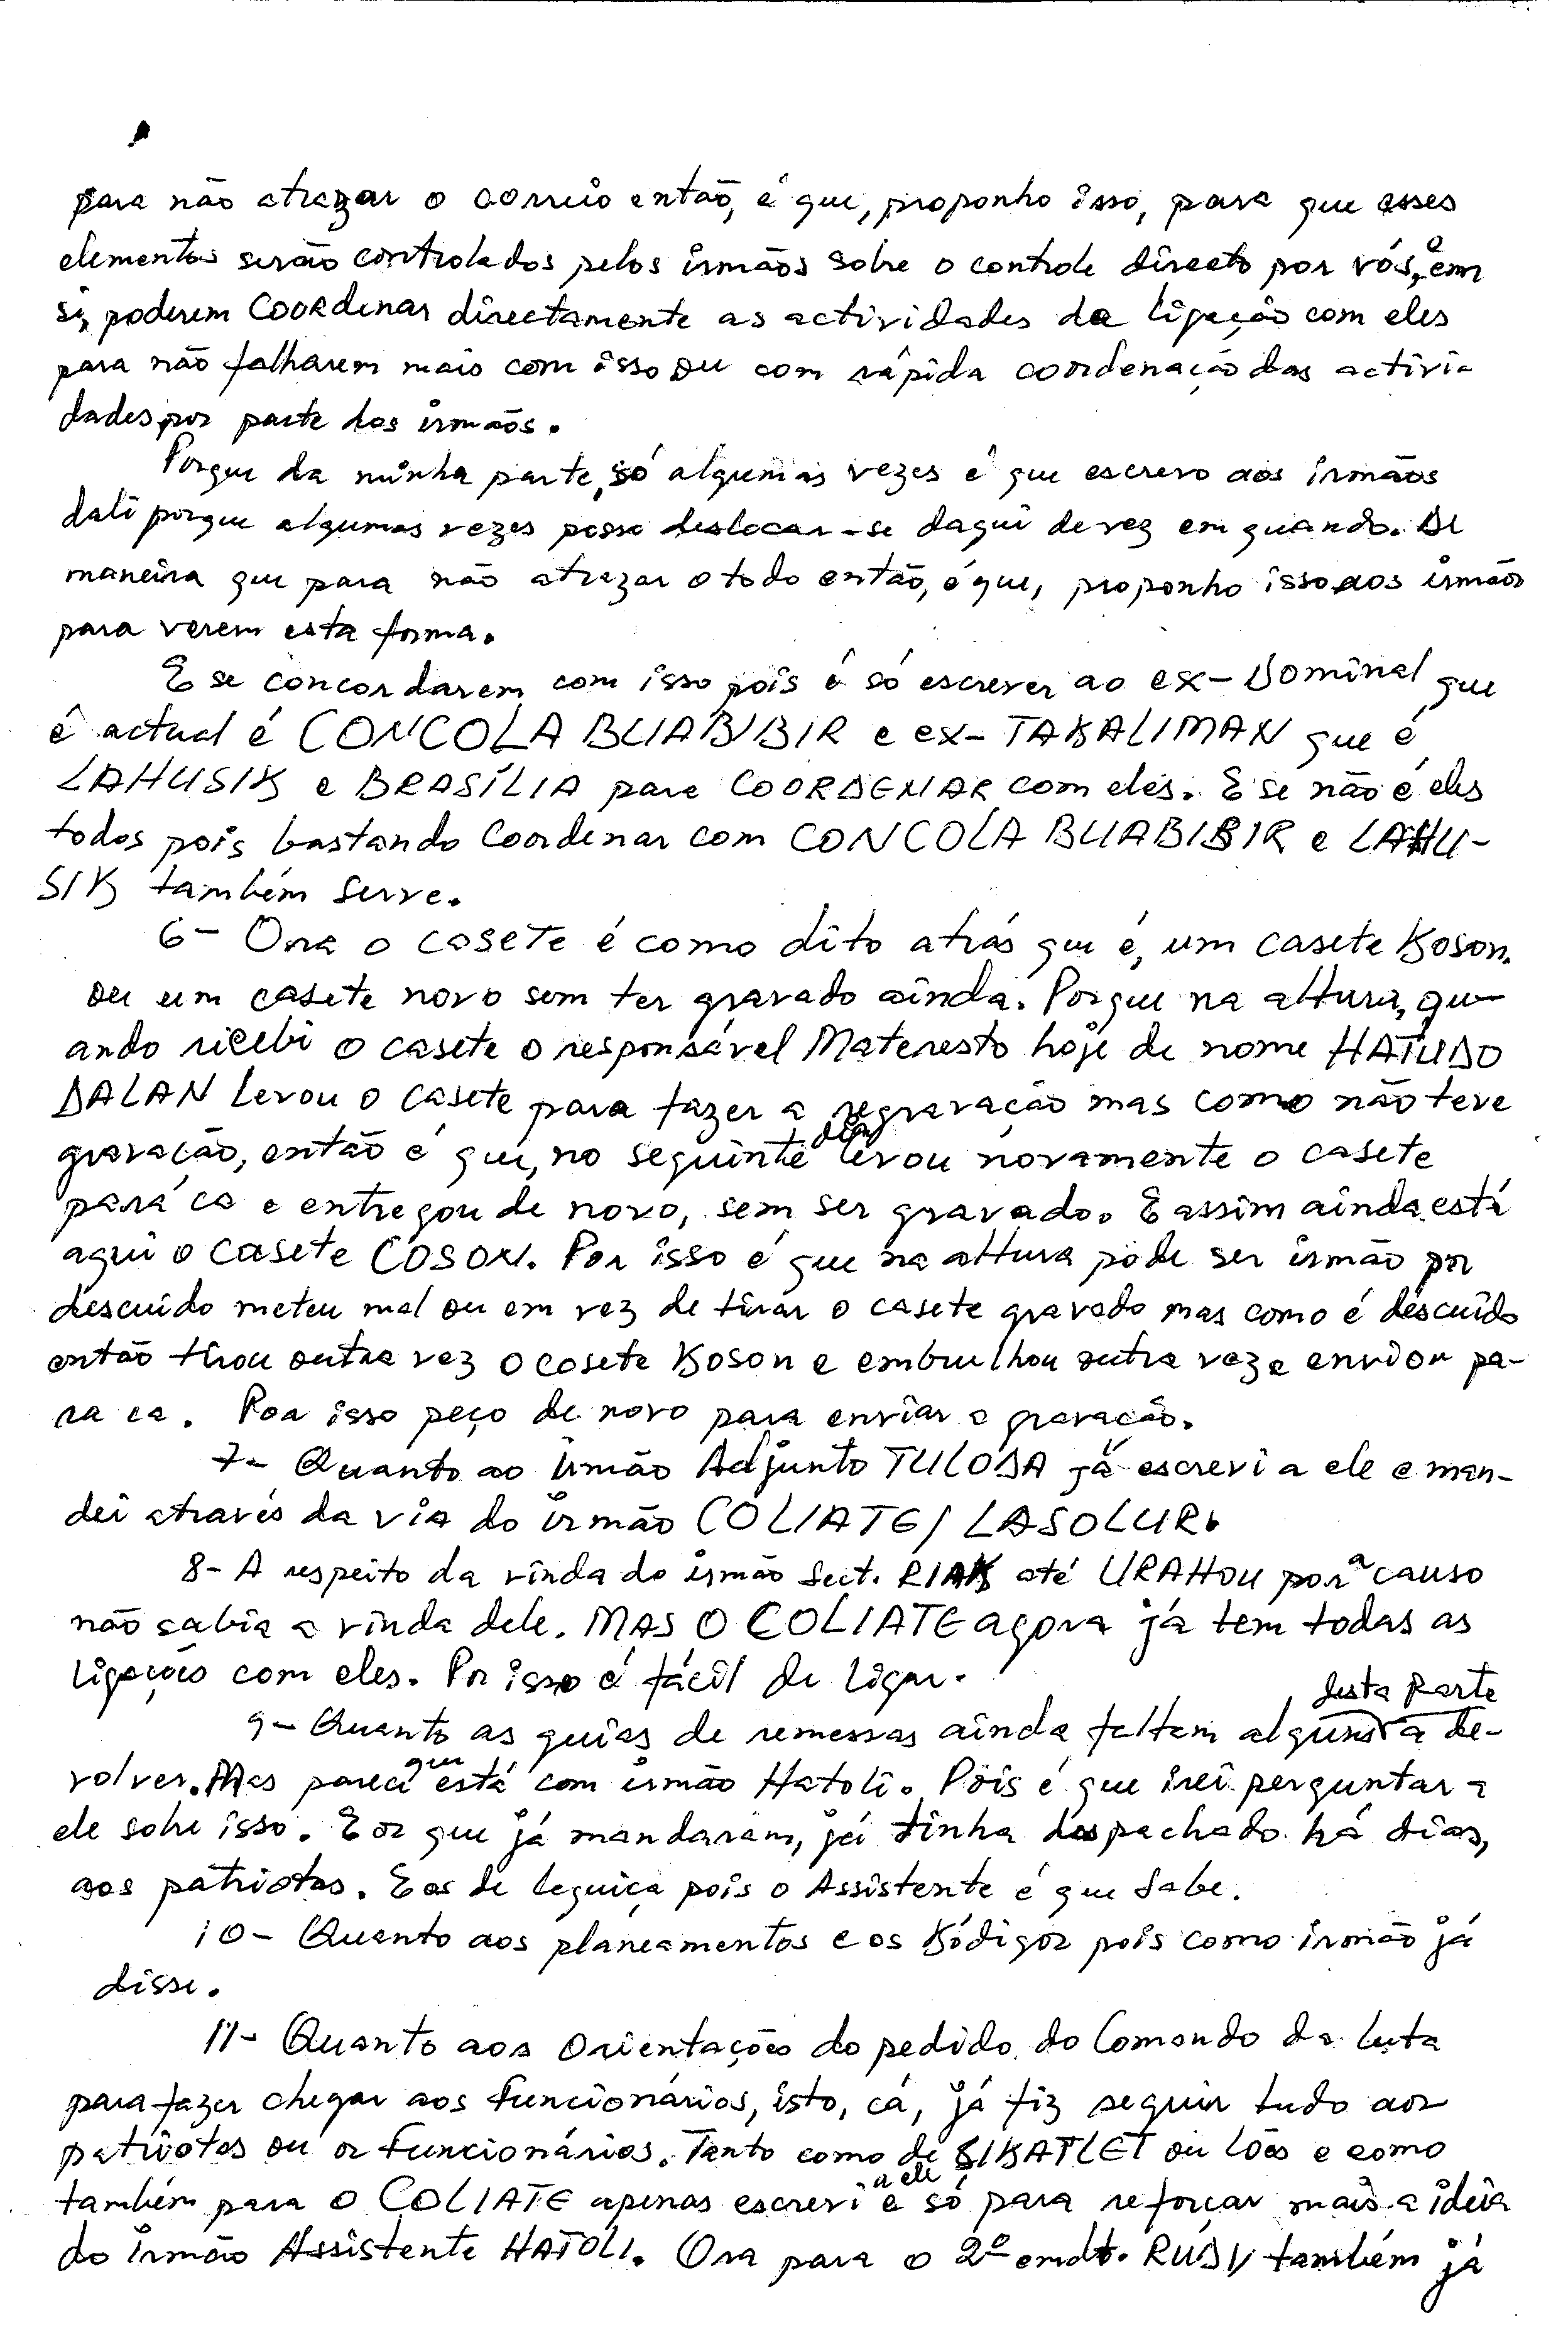 para não atrazar o correio então, é que, proponho isso, para que esses
elementos serão controlados pelos irmãos sobre o controle directo por vós, e em
si, poderem COORdenar directamente as actividades da ligação com eles
para não falharem mais com isso ou com rápida coordenação das activi-
dades por parte dos irmãos.
Porque da minha parte, só algumas vezes é que escrevo aos irmãos
dali porque algumas vezes posso deslocar-se daqui de vez em quando. De
maneira que para não atrazar o todo então, é que, proponho isso aos irmãos
para verem esta forma.
E se concordarem com isso pois é só escrever ao ex-Dominal que
é actual é CONCOLA BUABIBIR e ex-TAKALIMAN que é
LAHUSIK e BRASÍLIA para COORDENAR com eles. E se não é eles
todos pois bastando Coordenar com CONCOLA BUABIBIR e LAHU-
SIK também serve.
6- Ora o casete é como dito atrás que é, um casete Koson.
ou um casete novo sem ter gravado ainda. Porque na altura, qu-
ando recebi o casete o responsável Materesto hoje de nome HATUDO
DALAN levou o casete para fazer a regravação mas como não teve
gravação, então é que, no seguinte dia levou novamente o casete
para cá e entregou de novo, sem ser gravado. E assim ainda está
aqui o casete COSON. Por isso é que na altura pode ser irmão por
descuido meteu mal ou em vez de tirar o casete gravado mas como é descuido
então tirou outra vez o casete Koson e embrulhou outra vez e enviou pa-
ra ca. Por isso peço de novo para enviar a gravação.
7- Quanto ao irmão Adjunto TULODA já escrevi a ele e man-
dei através da via do irmão COLIATE/LASOLUR.
8- A respeito da vinda do irmão Sect. RIAK até URAHOU por a causo
não sabia a vinda dele. MAS O COLIATE agora já tem todas as
ligações com eles. Por isso é fácil de ligar.
9- Quanto as guias de remessas ainda faltam alguns desta parte a de-
volver. Mas parece que está com irmão Hatoli. Pois é que irei perguntar a
ele sobre isso. E os que já mandaram, já tinha despachado há dias,
aos patriotas. E os de leguiça pois o Assistente é que sabe.
10- Quanto aos planeamentos e os Kódigos pois como irmão já
disse.
11- Quanto aos Orientações do pedido do Comando da Luta
para fazer chegar aos funcionários, isto, cá, já fiz seguir tudo aos
patriotas ou os funcionários. Tanto como de SIKATLET ou Lões e como
também para o COLIATE apenas escrevi a ele e só para reforçar mais a ideia
do irmão Assistente HATOLI. Ora para o 2º cmdt. RUDY também já